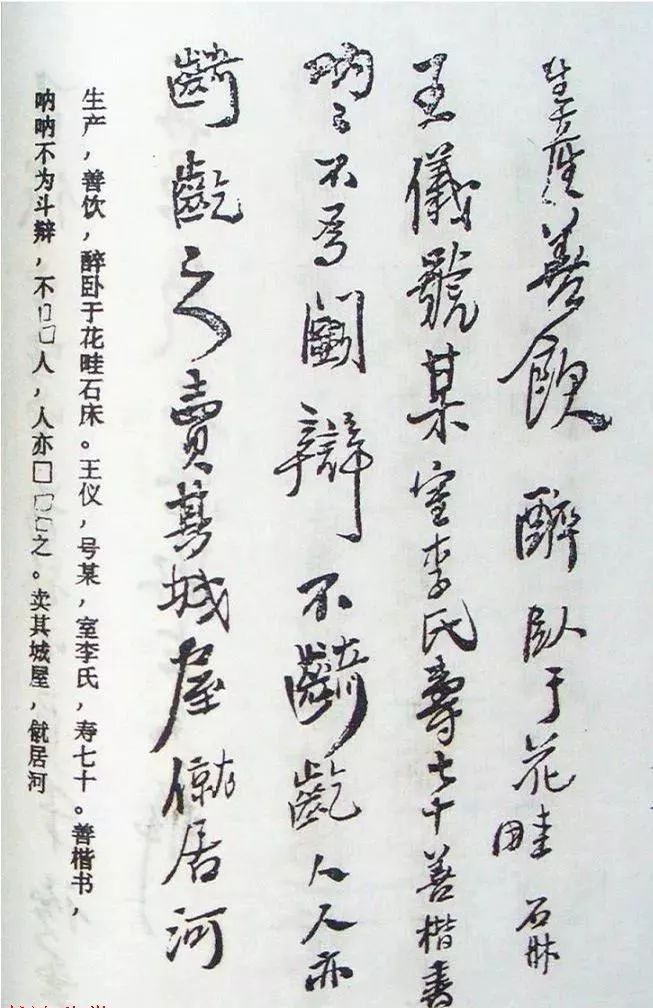 生产善飲醉臥于花畦石牀
王儀號某室李氏壽七十善楷書
吶吶不爲鬬辯不齮齕人人亦
齮齕之賣其城屋僦居河
生产，善饮，醉卧于花畦石床。王仪，号某，室李氏，寿七十。善楷书，
呐呐不为斗辩，不□□人，人亦□□□之。卖其城屋，僦居河